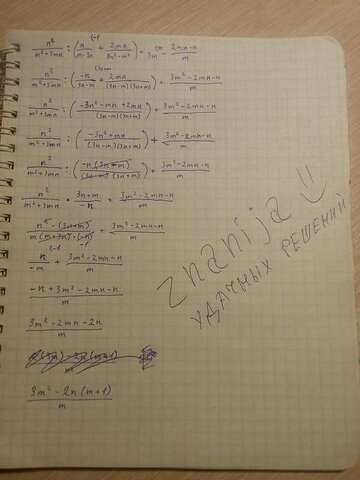 n²/(m²+3mn) : (n/(m-3n) + 2mn/(9n²-m²)) - 3m - (2mn-n)/m
n²/(m²+3mn) : (-n/(3n-m) + 2mn/((3n-m)(3n+m))) + (3m²-2mn-n)/m
n²/(m²+3mn) : ((-3n²-mn+2mn)/((3n-m)(3n+m))) + (3m²-2mn-n)/m
n²/(m²+3mn) : ((-3n²+mn)/((3n-m)(3n+m))) + (3m²-2mn-n)/m
n²/(m²+3mn) : (-n(3n-m)/((3n-m)(3n+m))) + (3m²-2mn-n)/m
n²/(m²+3mn) · (3n+m)/-n + (3m²-2mn-n)/m
+ (3m²-2mn-n)/m
n/-m + (3m²-2mn-n)/m
(-n+3m²-2mn-n)/m
(3m²-2mn-2n)/m
(3m²-2n(m+1))/m
znanija
удачных решений